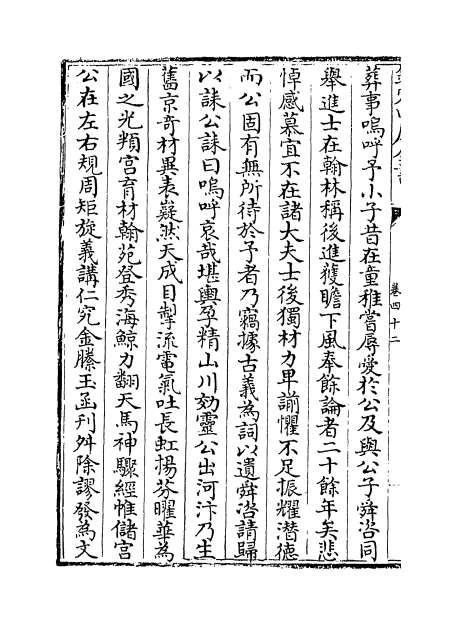 卷四十二
葬事嗚呼予小子昔在童稚嘗辱愛於公及與公子舜咨同
舉進士在翰林稱後進獲瞻下風奉餘論者二十餘年矣悲
悼感慕宜不在諸大夫士後獨材力卑謭懼不足振耀潛德
而公固有無所待於予者乃竊據古義為詞以遺舜咨請歸
以誄公誄曰嗚呼哀哉堪輿孕精山川効靈公出河汴乃生
舊京奇材異表嶷然天成目掣流電氣吐長虹揚芬曜華為
國之光頖宮育材翰苑登秀海鯨力翻天馬神驟經帷儲宮
公在左右規周矩旋義講仁究金縢玉函刋舛除謬發為文